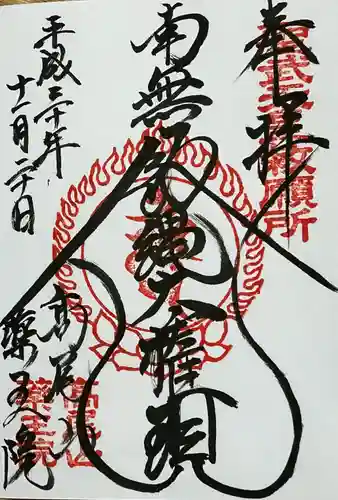 奉拝
南無飯縄大権現
平成三十年
十一月二十日
高尾山
薬王院
高尾山
薬王院